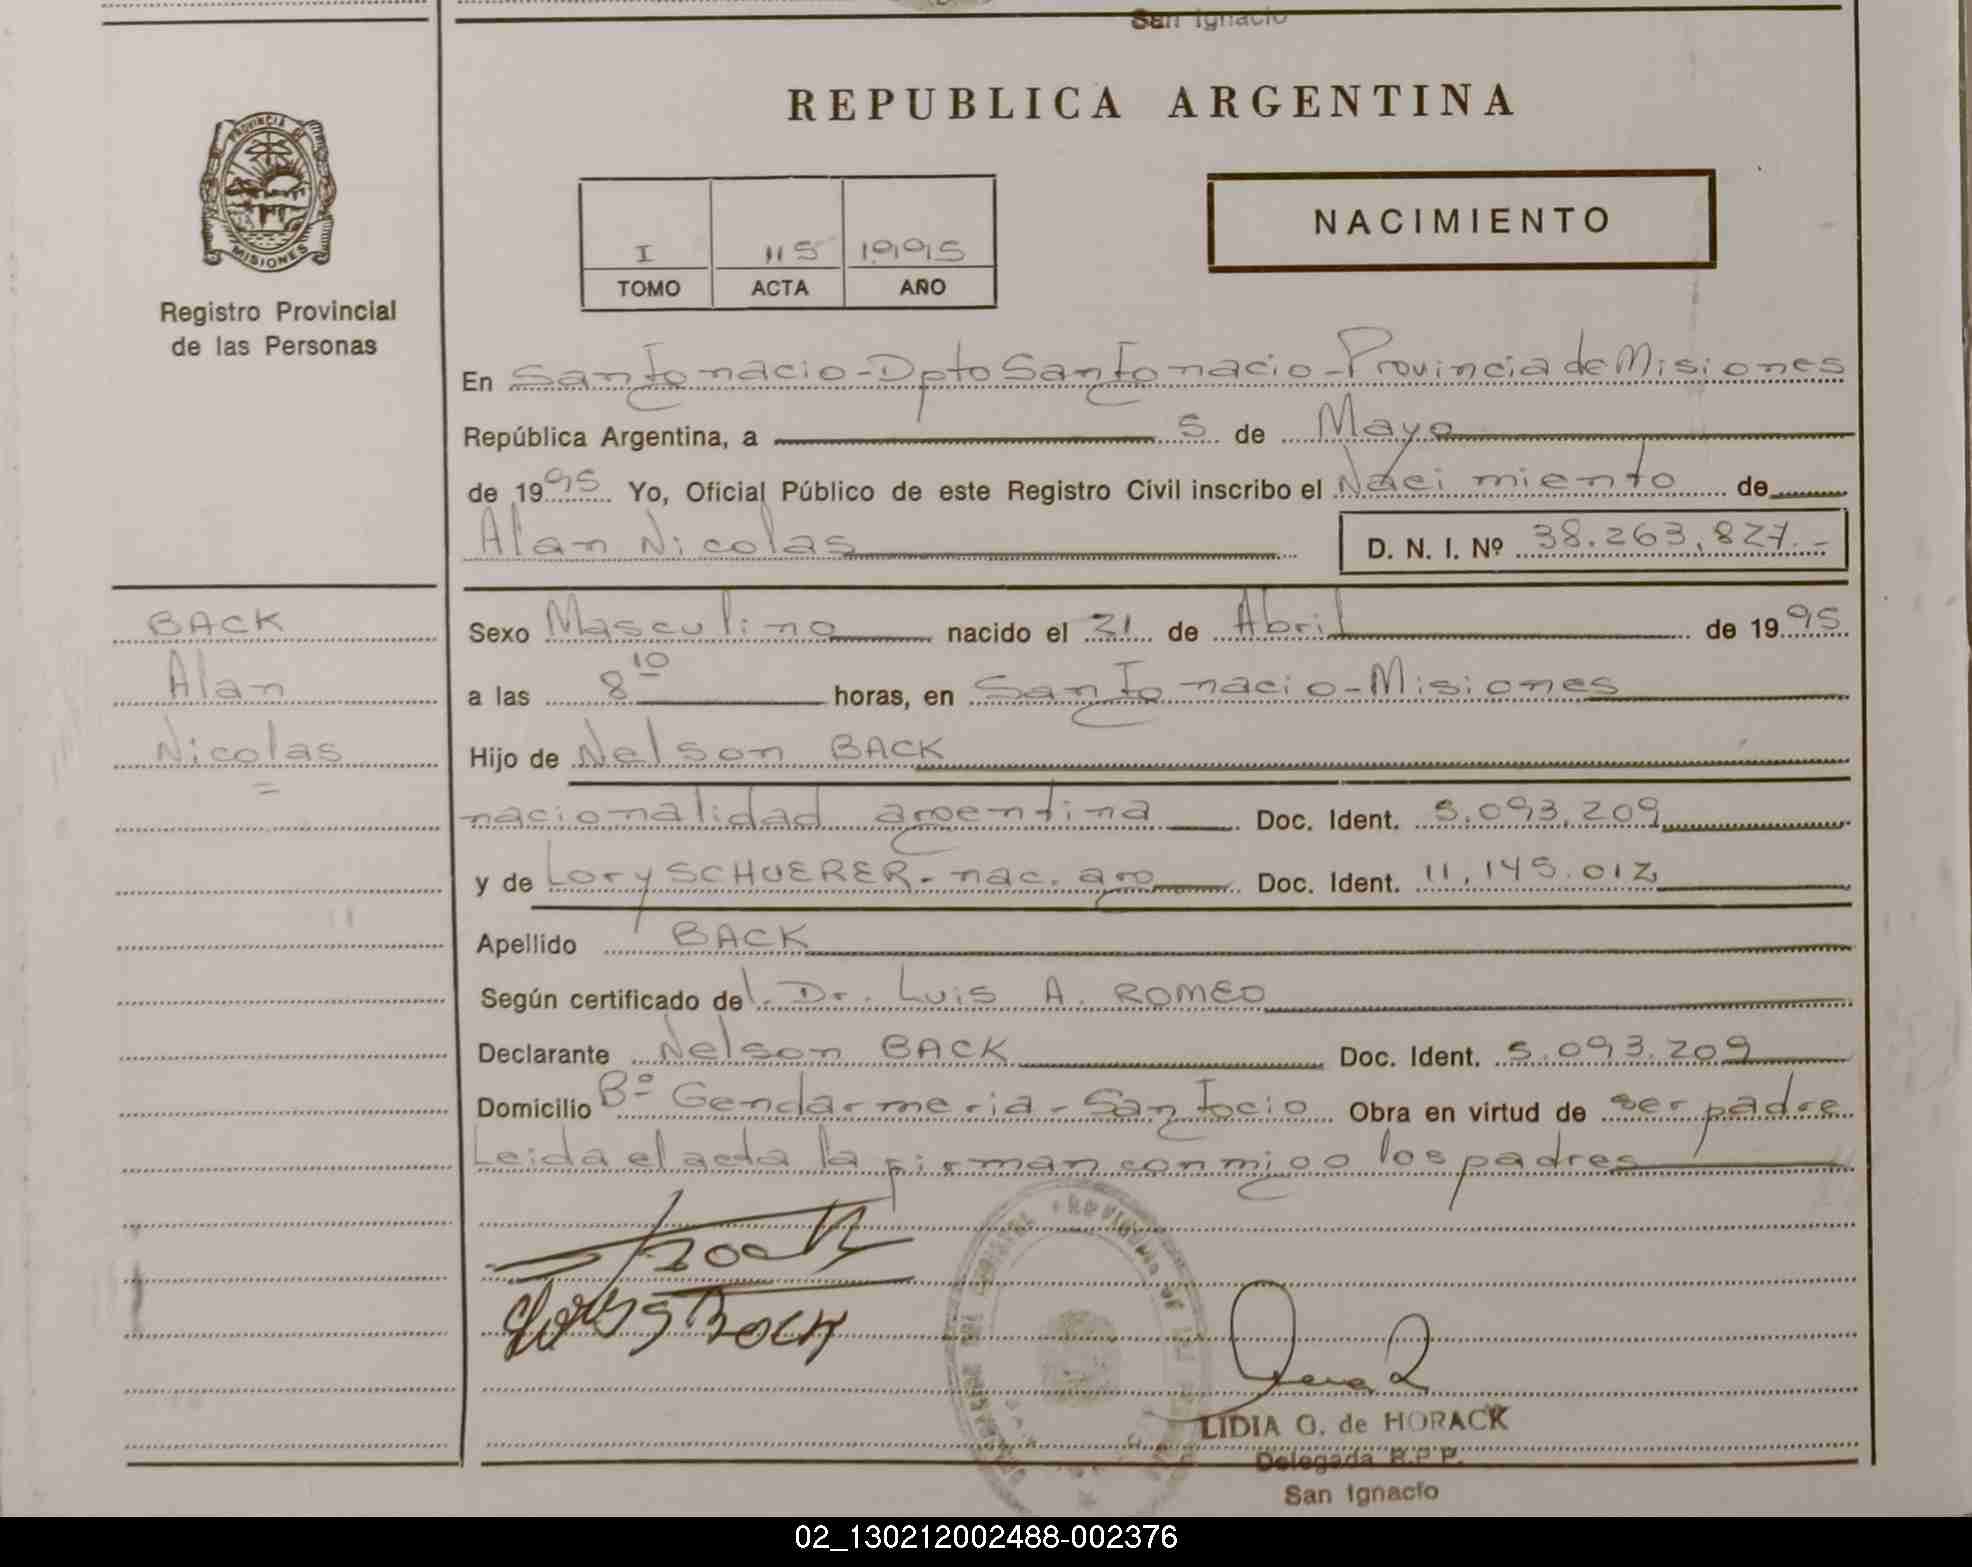 San Ignacio
REPUBLICA ARGENTINA
PROVINCIA DE
MISIONES
NACIMIENTO
I 115 1995
TOMO ACTA AÑO
Registro Provincial
de las Personas
En San Ignacio - Dpto San Ignacio - Provincia de Misiones
República Argentina, a 5 de Mayo
de 1995 Yo, Oficial Público de este Registro Civil inscribo el Nacimiento de
Alan Nicolas D. N. I. Nº 38.263.827.-
BACK
Alan
Nicolas
Sexo Masculino nacido el 21 de Abril de 1995
a las 8 10 horas, en San Ignacio - Misiones
Hijo de Nelson BACK
nacionalidad argentina Doc. Ident. 5.093.209
y de Lory SCHUERER - nac. arg Doc. Ident. 11.145.012
Apellido BACK
Según certificado del Dr. Luis A. ROMEO
Declarante Nelson BACK Doc. Ident. 5.093.209
Domicilio Bº Gendarmeria - San Igcio Obra en virtud de ser padre
Leida el acta la firman conmigo los padres
Back
Back
LIDIA O. de HORACK
Delegada R.P.P.
San Ignacio
02_130212002488-002376